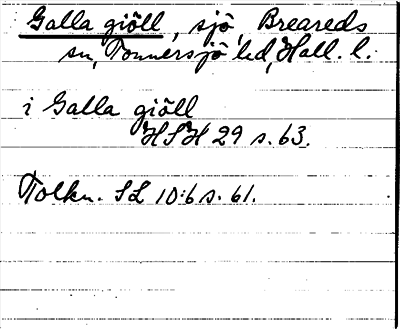 Galla giöll, sjö, Breareds
sn, Tönnersjö hd, Hall. l.
i Galla giöll
HSH 29 s. 63.
Tolkn. SL 10:6 s. 61.